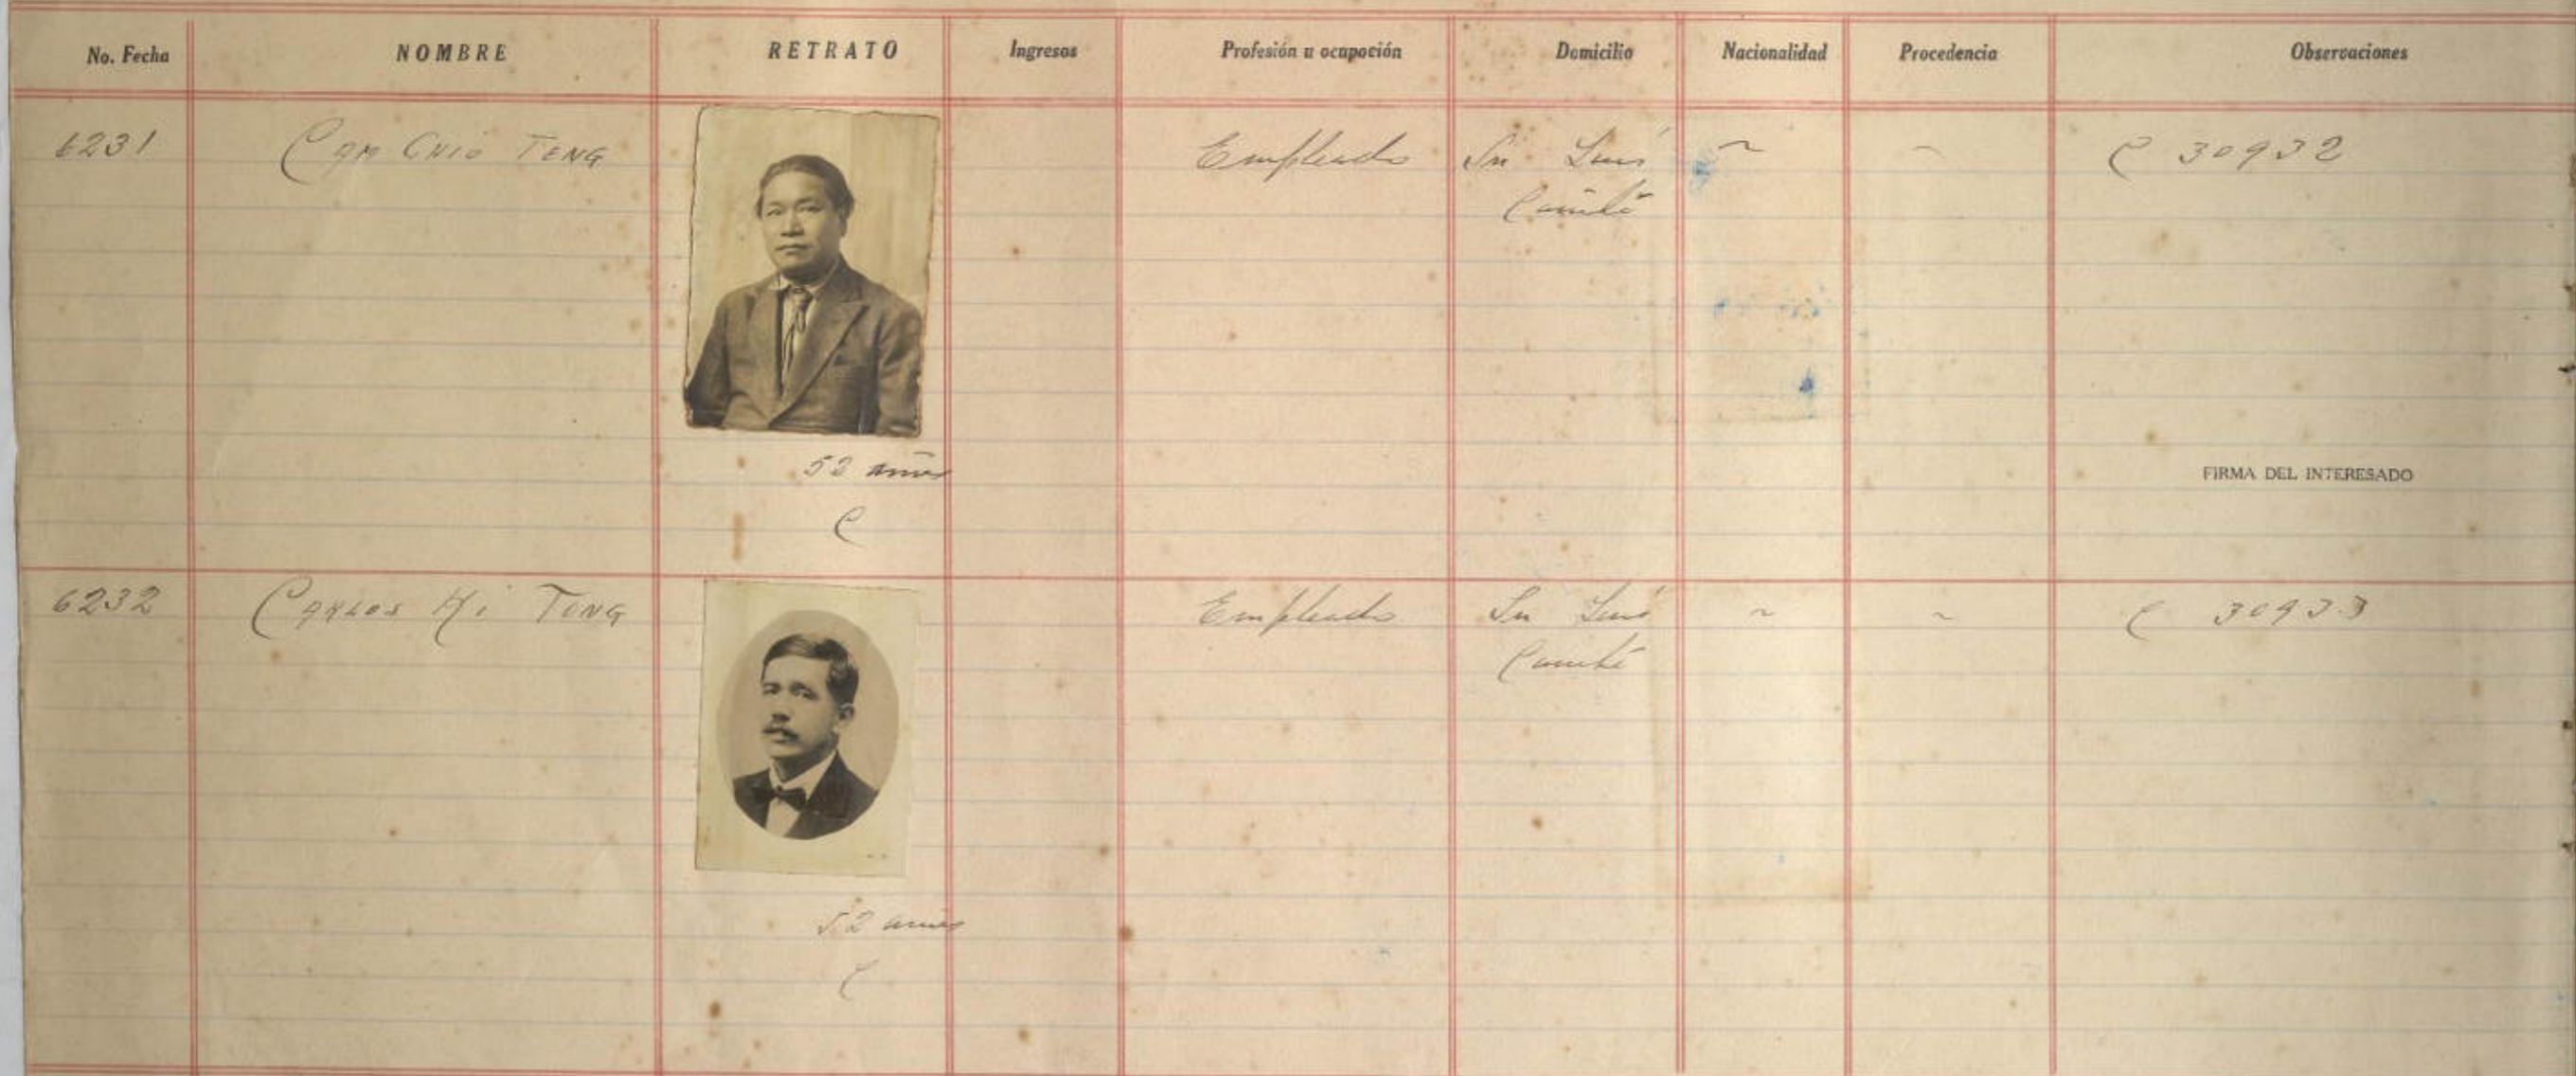 No. Fecha NOMBRE RETRATO Ingresos Profesión u ocupación Domicilio Nacionalidad Procedencia Observaciones
6231 Cam Chio Teng Empleado Sn Luis ~ ~ C 30932
52 años
FIRMA DEL INTERESADO
C
6232 Carlos Hi Tong Empleado Sn Luis ~ ~ C 30933
52 años
C